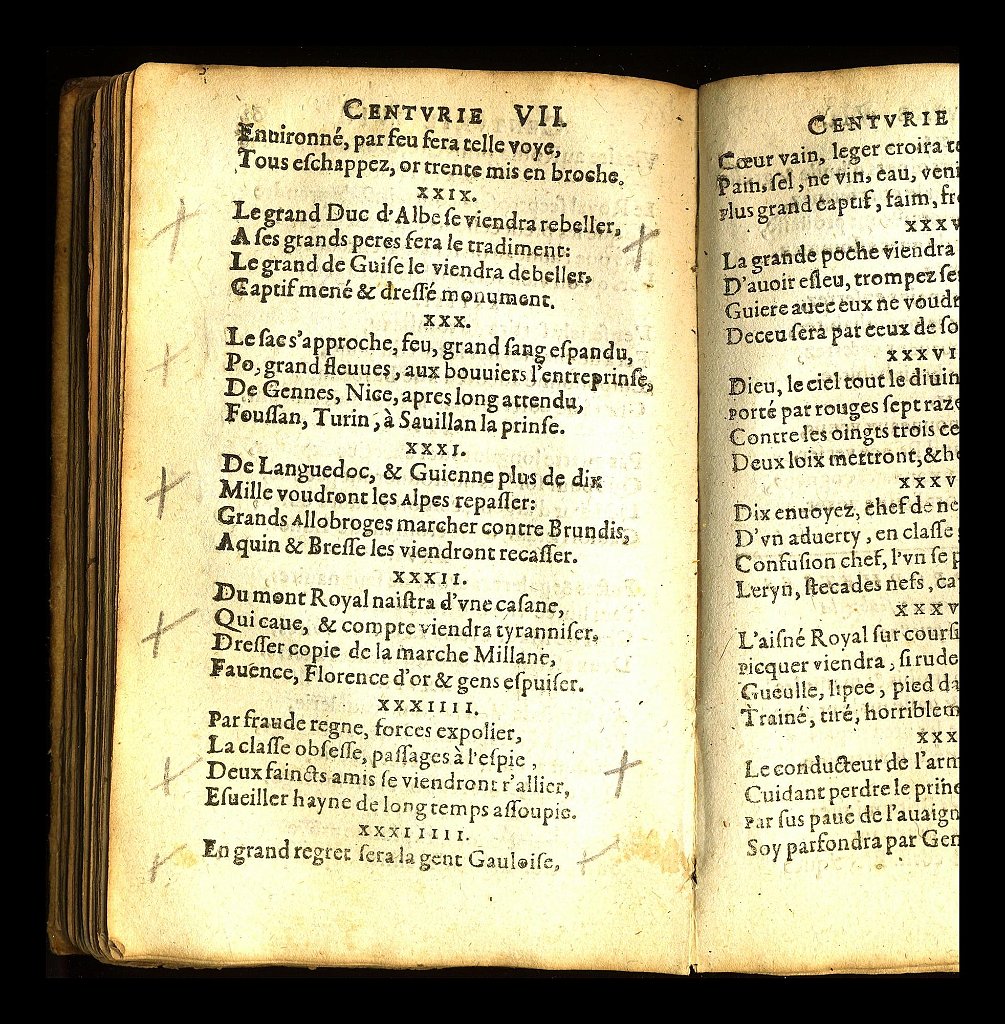 CENTVRIE VII.
Enuironné, par feu ſera telle voye,
Tous eſchappez, or trente mis en broche.
XXIX.
Le grand Duc d'Albe ſe viendra rebeller,
A ſes grands peres fera le tradiment:
Le grand de Guiſe le viendra debeller,
Captif mené & dreſſé monument.
XXX.
Le ſac s'approche, feu, grand ſang eſpandu,
Po, grand fleuues, aux bouuiers l'entreprinſe,
De Gennes, Nice, apres long attendu,
Fouſſan, Turin, à Sauillan la prinſe.
XXXI.
De Languedoc, & Guienne plus de dix
Mille voudront les Alpes repaſſer:
Grands Allobroges marcher contre Brundis,
Aquin & Breſſe les viendront recaſſer.
XXXII.
Du mont Royal naiſtra d'vne caſane,
Qui caue, & compte viendra tyranniſer,
Dreſſer copie de la marche Millane,
Fauence, Florence d'or & gens eſpuiſer.
XXXIIII.
Par fraude regne, forces expolier,
La claſſe obſeſſe, paſſages à l'eſpie,
Deux fainɕts amis ſe viendront r'allier,
Eſueiller hayne de long temps aſſoupie.
XXXIIIII.
En grand regret ſera la gent Gauloiſe,
CENTVRIE
Cœur vain, leger croira
Pain, ſel, ne vin, eau,
Plus grand captif, faim,
La grande poche viendra
D'auoir eſleu, trompez
Guiere auec eux ne
Deceu ſera par ceux de
Dieu, le ciel tout le
Porté par rouges ſept
Contre les oingts trois
Deux loix mettront, &
Dix enuoyez, chef de
D'vn aduerty, en claſſe
Confuſion chef, l'vn ſe
Leryn, ſtecades nefs,
L'aiſné Royal ſur
Picquer viendra, ſi rude
Gueulle, lipee, pied
Trainé, tiré,
Le conducteur de
Cuidant perdre le
Par ſus paué de
Soy parfondra par